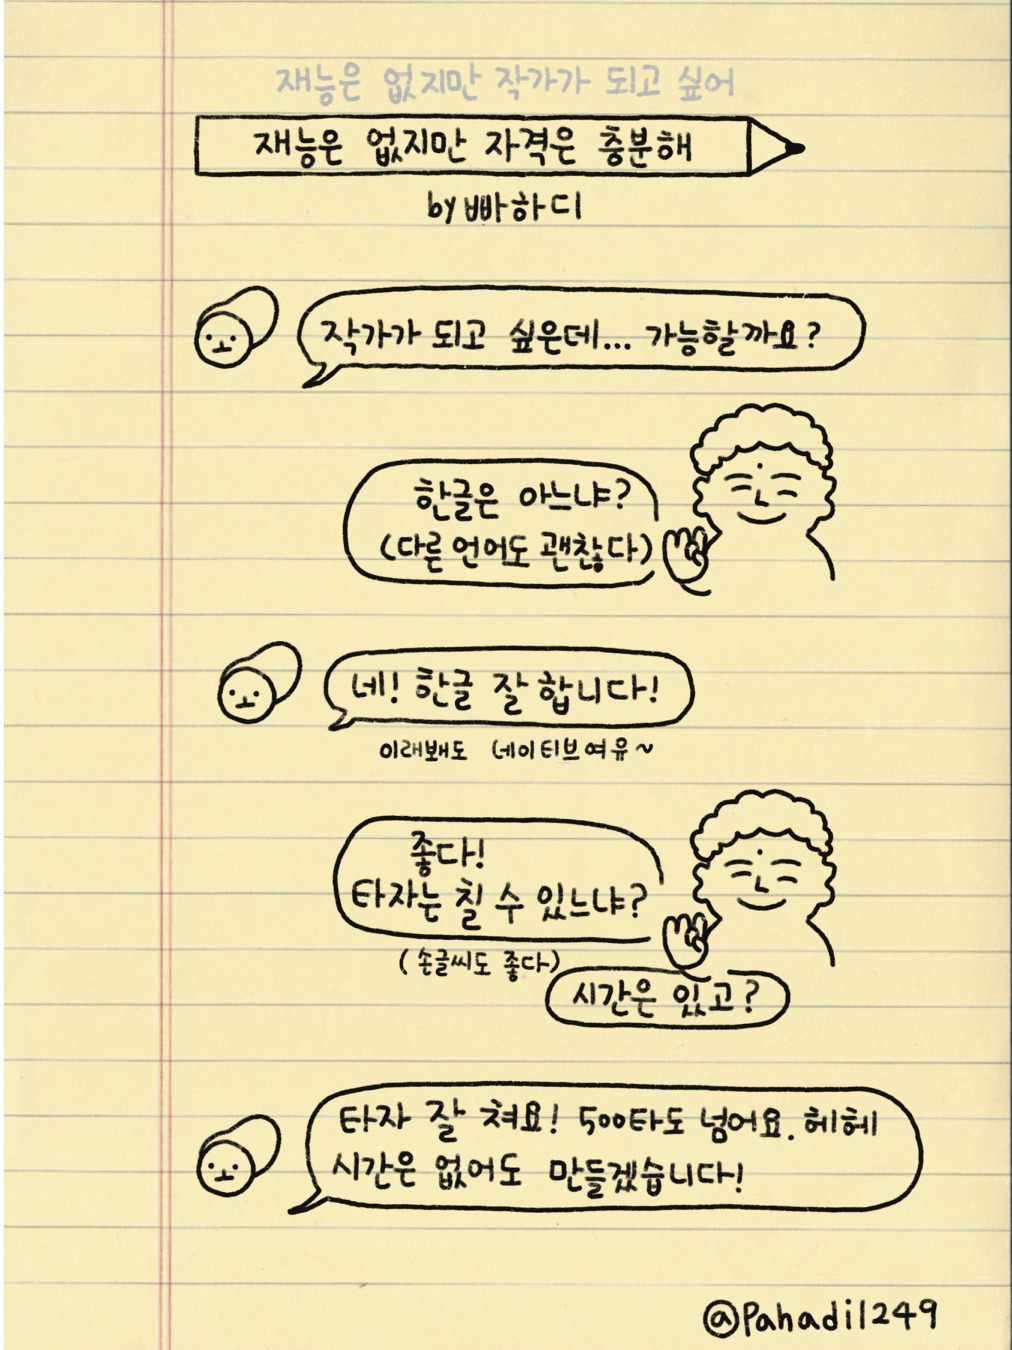 재능은 없지만 작가가 되고 싶어
재능은 없지만 자격은 충분해
by 빠하디
작가가 되고 싶은데... 가능할까요?
한글은 아느냐?
(다른 언어도 괜찮다)
네! 한글 잘 합니다!
이래봬도 네이티브여유~
좋다!
타자는 칠 수 있느냐?
(손글씨도 좋다)
시간은 있고?
타자 잘 쳐요! 500타도 넘어요. 헤헤
시간은 없어도 만들겠습니다!
@Pahadi1249